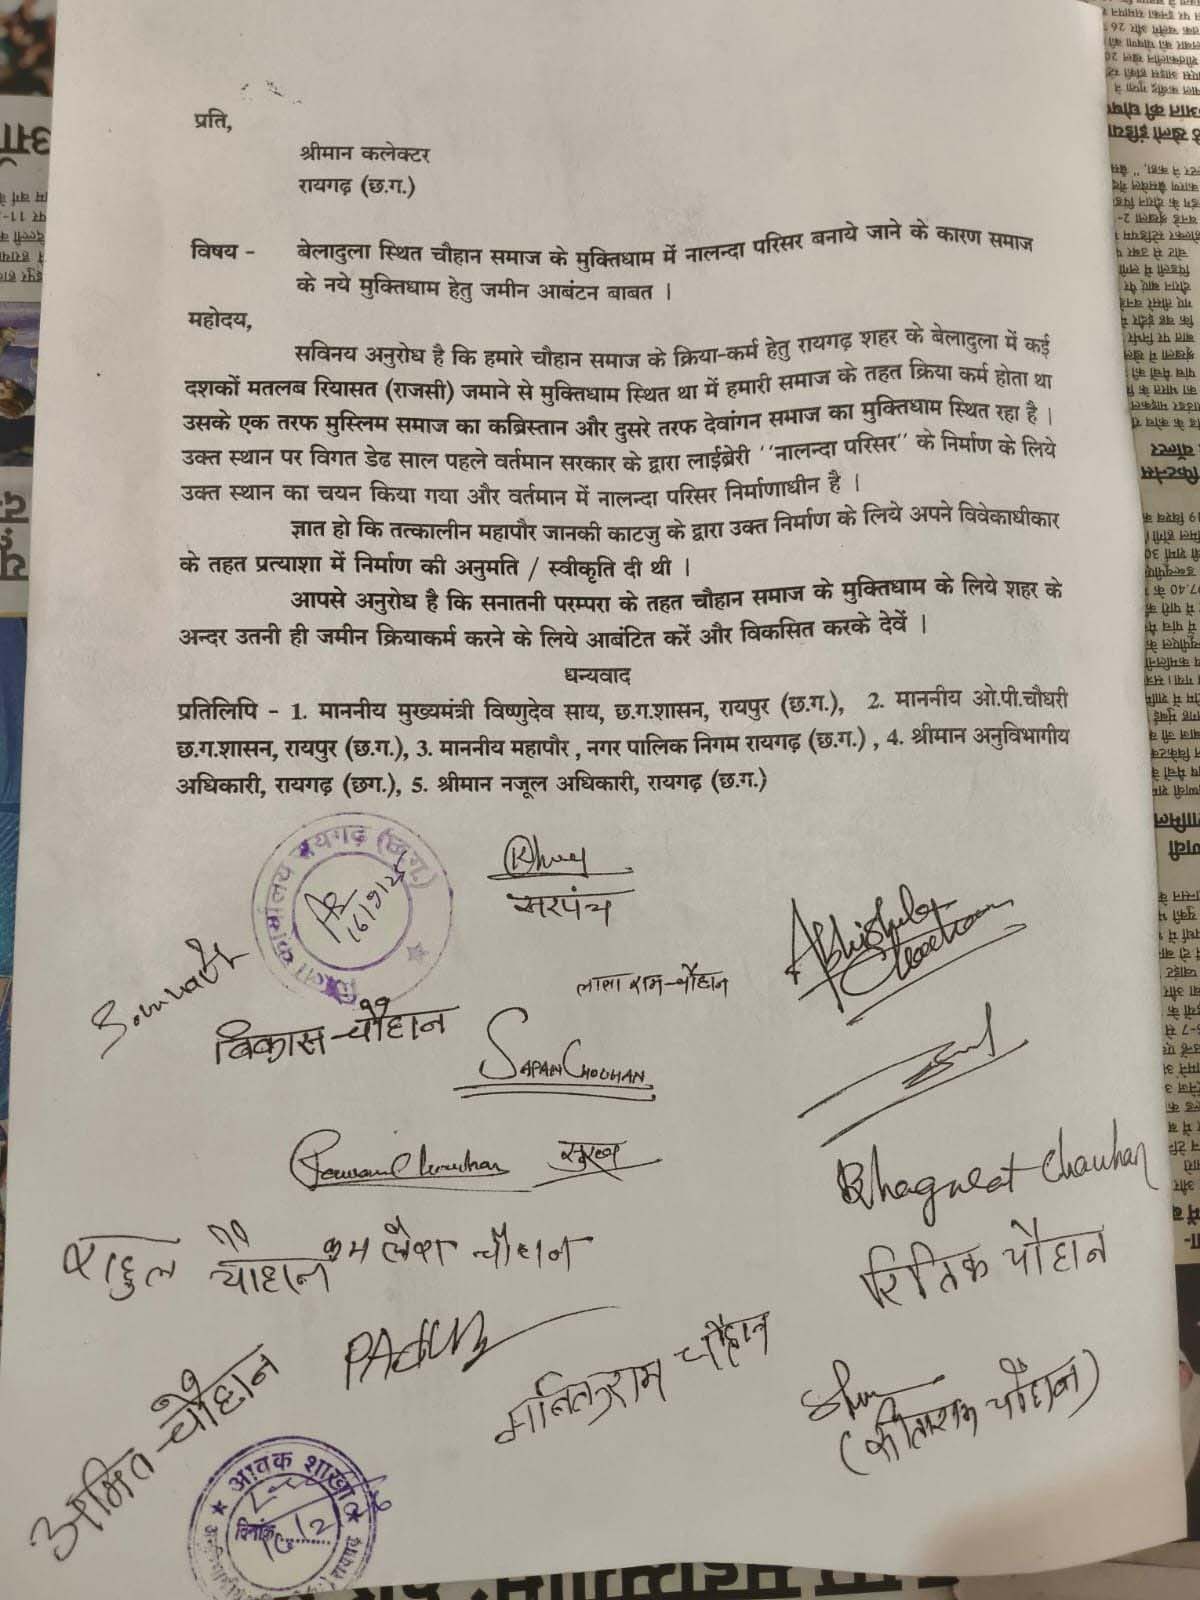 प्रति,
श्रीमान कलेक्टर
रायगढ़ (छ.ग.)
विषय - बेलादुला स्थित चौहान समाज के मुक्तिधाम में नालन्दा परिसर बनाये जाने के कारण समाज
के नये मुक्तिधाम हेतु जमीन आबंटन बाबत ।
महोदय,
सविनय अनुरोध है कि हमारे चौहान समाज के क्रिया-कर्म हेतु रायगढ़ शहर के बेलादुला में कई
दशकों मतलब रियासत (राजसी) जमाने से मुक्तिधाम स्थित था में हमारी समाज के तहत क्रिया कर्म होता था
उसके एक तरफ मुस्लिम समाज का कब्रिस्तान और दुसरे तरफ देवांगन समाज का मुक्तिधाम स्थित रहा है ।
उक्त स्थान पर विगत डेढ साल पहले वर्तमान सरकार के द्वारा लाईब्रेरी ''नालन्दा परिसर'' के निर्माण के लिये
उक्त स्थान का चयन किया गया और वर्तमान में नालन्दा परिसर निर्माणाधीन है ।
ज्ञात हो कि तत्कालीन महापौर जानकी काटजु के द्वारा उक्त निर्माण के लिये अपने विवेकाधीकार
के तहत प्रत्याशा में निर्माण की अनुमति / स्वीकृति दी थी ।
आपसे अनुरोध है कि सनातनी परम्परा के तहत चौहान समाज के मुक्तिधाम के लिये शहर के
अन्दर उतनी ही जमीन क्रियाकर्म करने के लिये आबंटित करें और विकसित करके देवें ।
धन्यवाद
प्रतिलिपि - 1. माननीय मुख्यमंत्री विष्णुदेव साय, छ.ग.शासन, रायपुर (छ.ग.), 2. माननीय ओ.पी.चौधरी
छ.ग.शासन, रायपुर (छ.ग.), 3. माननीय महापौर , नगर पालिक निगम रायगढ़ (छ.ग.) , 4. श्रीमान अनुविभागीय
अधिकारी, रायगढ़ (छग.), 5. श्रीमान नजूल अधिकारी, रायगढ़ (छ.ग.)
कार्यालय रायगढ़ (छ.ग.)
सरपंच
Abhishek Chauhan
लाला राम चौहान
विकास चौहान
SAPAN CHOUHAN
Pawan Chouhan
Bhagwat Chauhan
राहुल चौहान
कमलेश चौहान
रितिक चौहान
अमित चौहान
चौहान
चौहान)
आवक शाखा
दिनांक
रायगढ़